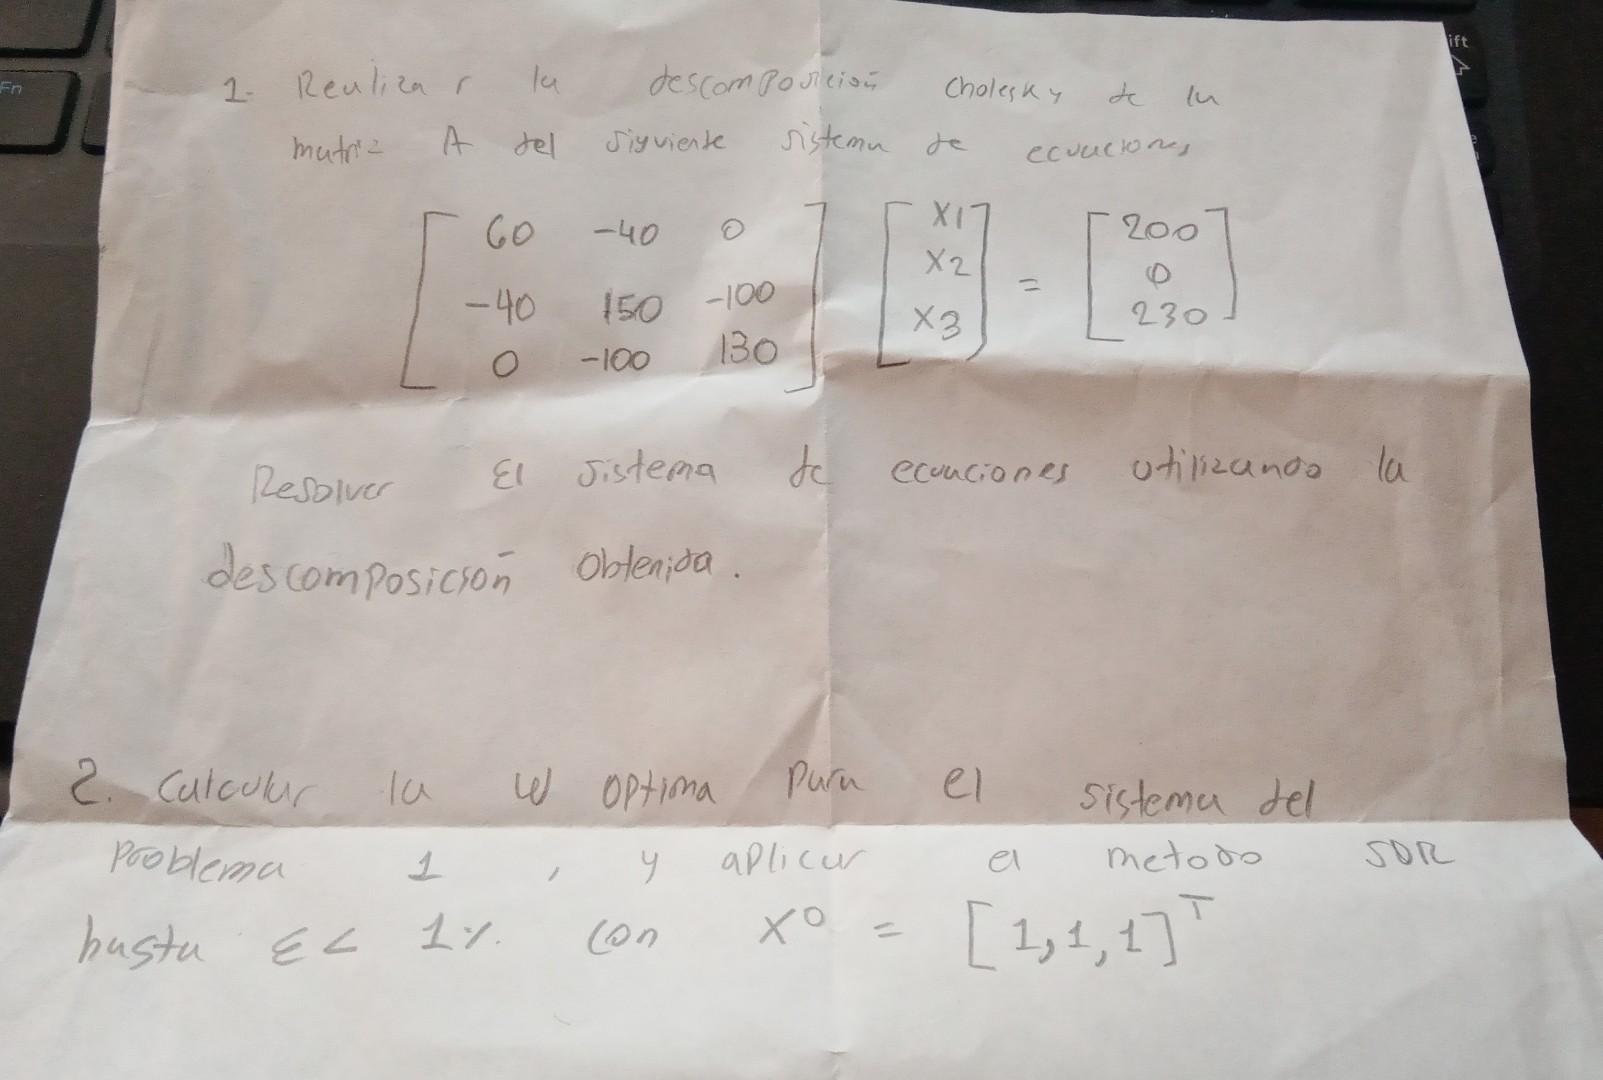 1. Realizar la descomposición Cholesky de la
matriz A del siguiente sistema de ecuaciones
60 -40 0
-40 150 -100
0 -100 130
x1
x2
x3
=
200
0
230
Resolver El sistema de ecuaciones utilizando la
descomposición obtenida.
2. Calcular la w optima para el sistema del
problema 1, y aplicar el metodo SOR
hasta ε< 1%. con x⁰ = [1,1,1]ᵀ
Fn
ift